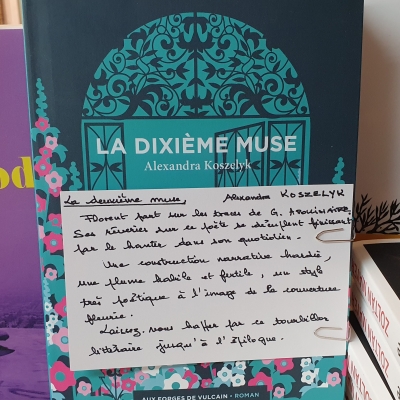 LA DIXIÈME MUSE
Alexandra Koszelyk
La deuxième muse, Alexandra KOSZELYK
Florent part sur les traces de G. APOLLINAIRE.
Ses rêveries sur ce poète se décuplent finissant
par le hanter dans son quotidien.
Une construction narrative hardie,
une plume habile et fertile, un style
très poétique à l'image de la couverture
fleurie.
Laissez-vous happer par ce tourbillon
littéraire jusqu'à l'épilogue.
AUX FORGES DE VULCAIN - ROMAN
od